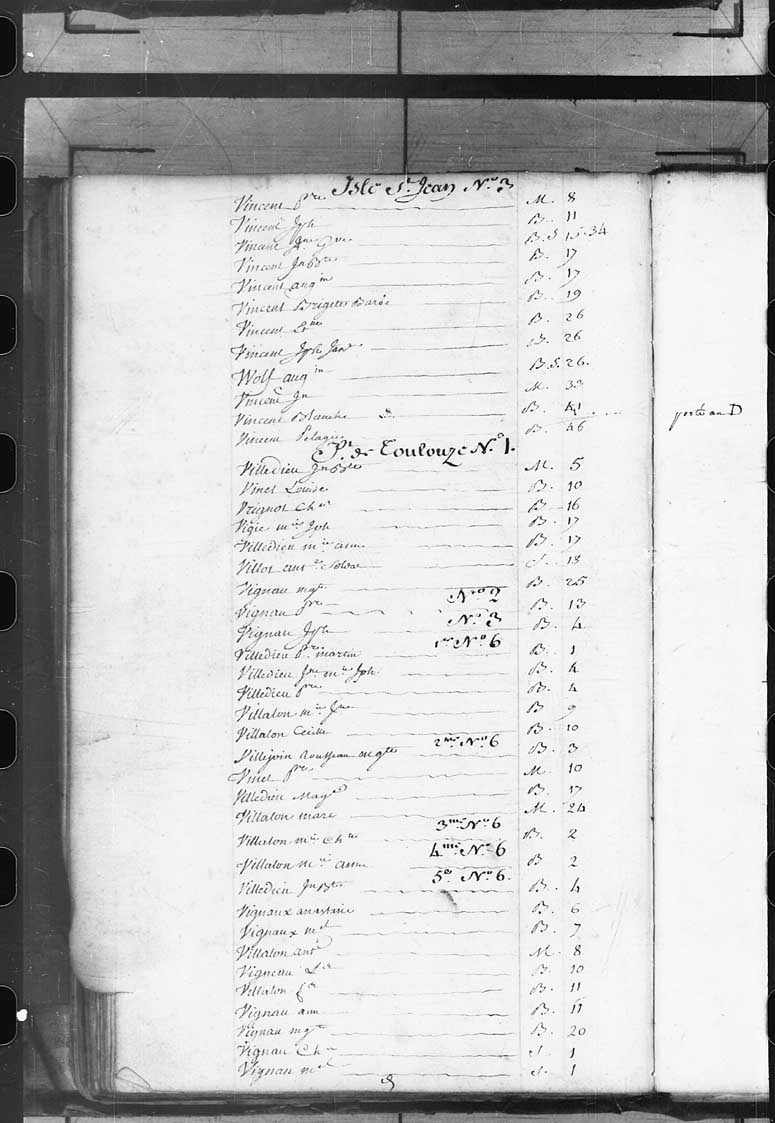 Isle St Jean No 3
Vincent pre M. 8
Vincent Jph B. 11
B.S 15.34
Vincent Jn Bte B. 17
Vincent augin B. 17
Vincent Brigitte Barbe B. 19
Vincent B. 26
Vincent Jph B. 26
Wolf augin B.S. 26.
Vincent Jn M. 33
Vincent Blanche B. 41
Vincent Pelagie B. 46
porté au D
Pt. de Toulouze No. 1.
Villedieu Jn Bte M. 5
Vinet Louise B. 10
Vrignot Ches B. 16
Vigie mie Jph B. 17
Villedieu mie anne B. 17
Villot antne S. 18
Vignau mgte B. 25
No 2
Vignau pre B. 13
No. 3
Vignau Jph B. 4
1er No 6
Villedieu pre martin B. 1
Villedieu Jne mie Jph B. 4
Villedieu pre B. 4
Villalon mie Jne B 9
Villalon Cecille B. 10
2me No 6
Villejoin Rousseau mgte B. 3
Vinet pre M. 10
Villedieu Magd B. 17
Villalon marc M. 24
3me No 6
Villalon mie Chte B. 2
4me No. 6
Villalon mie anne B 2
5e No 6.
Villedieu Jn Bte B. 4
Vignaux anastasie B. 6
Vignaux mel B. 7
Villalon antne M. 8
Vigneau B. 10
Villalon B. 11
Vignau ann B. 11
Vignau mgte B. 20
Vignau Ch S. 1
Vignau mel S. 1